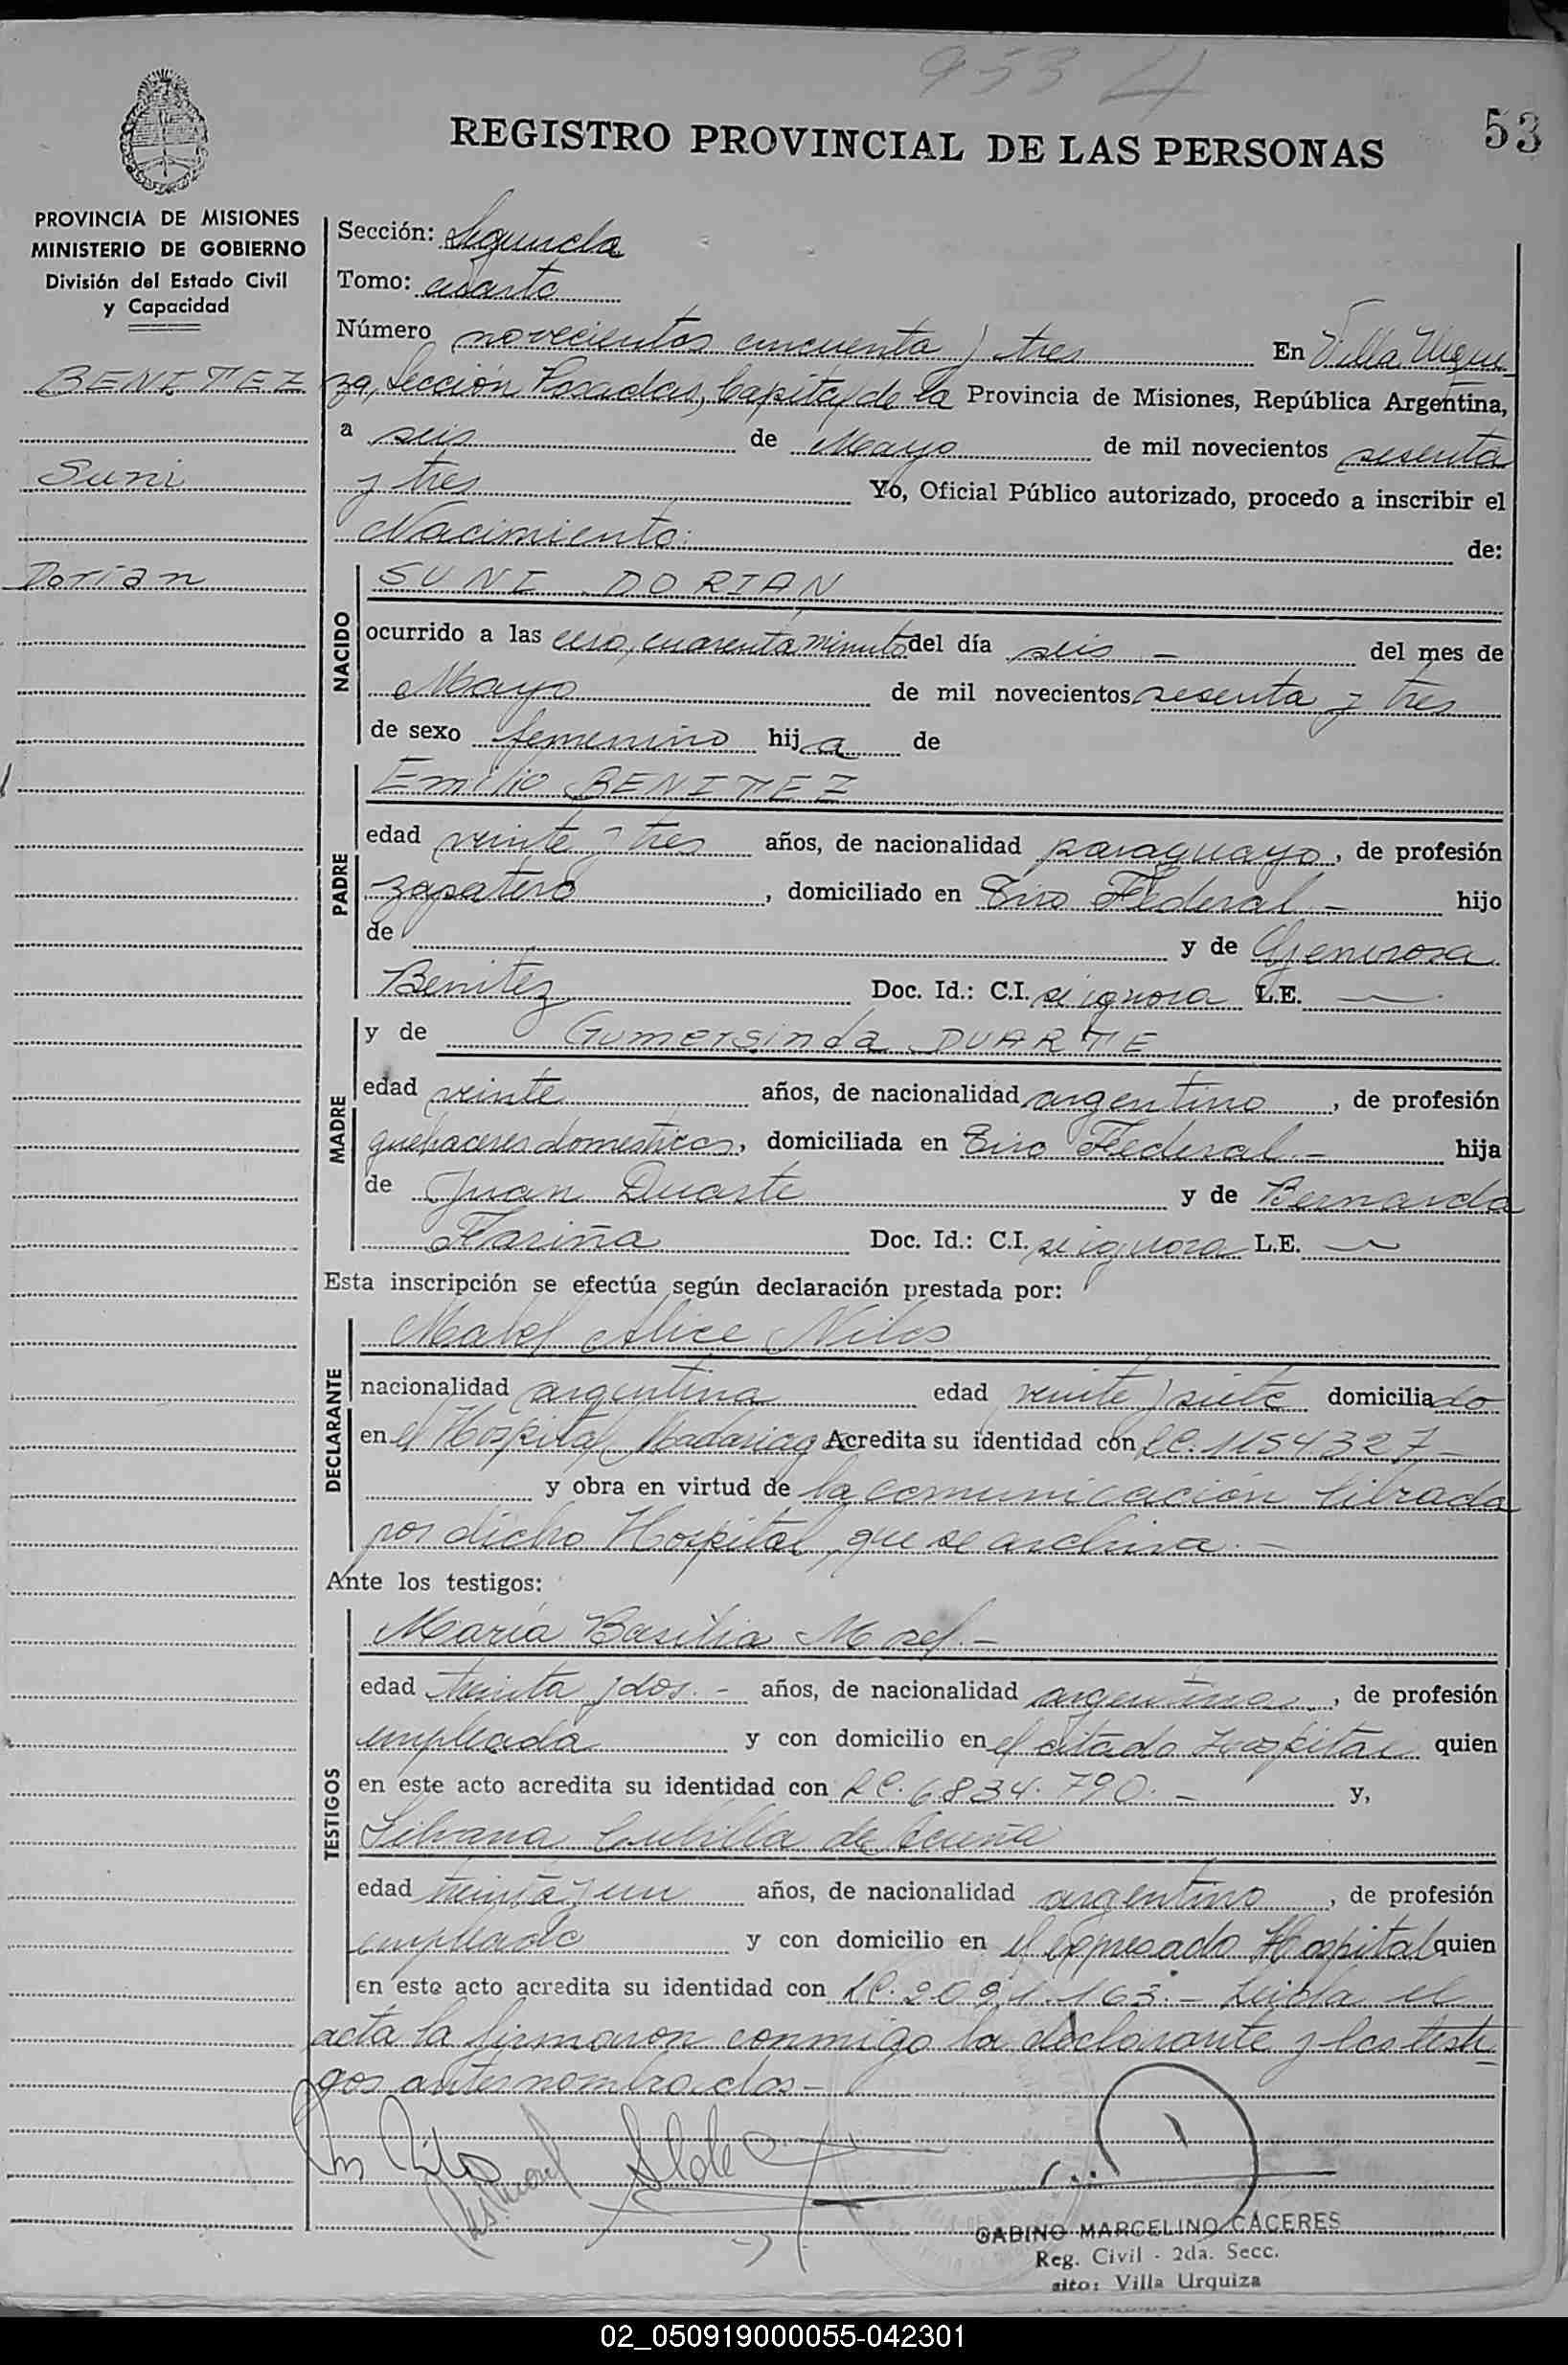 953 4
53
REGISTRO PROVINCIAL DE LAS PERSONAS
PROVINCIA DE MISIONES
MINISTERIO DE GOBIERNO
División del Estado Civil
y Capacidad
BENITEZ
Suni
Dorian
Sección: Segunda
Tomo: cuarto
Número novecientos cincuenta y tres En Villa Urqui
za, Sección Posadas, Capital de la Provincia de Misiones, República Argentina,
a seis de Mayo de mil novecientos sesenta
y tres Yo, Oficial Público autorizado, procedo a inscribir el
Nacimiento: de:
NACIDO
SUNI DORIAN
ocurrido a las cero, cuarenta minutos del día seis - del mes de
Mayo de mil novecientos sesenta y tres
de sexo femenino hija de
PADRE
Emilio BENITEZ
edad veinte y tres años, de nacionalidad paraguayo, de profesión
zapatero, domiciliado en Tiro Federal - hijo
de y de Generosa
Benitez Doc. Id.: C.I. se ignora L.E. —
MADRE
y de Gumersinda DUARTE
edad veinte años, de nacionalidad argentino, de profesión
quehaceres domesticos, domiciliada en Tiro Federal.- hija
de Juan Duarte y de Bernarda
Fariña Doc. Id.: C.I. se ignora L.E. —
Esta inscripción se efectúa según declaración prestada por:
DECLARANTE
Mabel Alice Nilos
nacionalidad argentina edad veinte y siete domiciliado
en el Hospital Madariaga Acredita su identidad con LC. 1154327-
y obra en virtud de la comunicación librada
por dicho Hospital, que se archiva.-
Ante los testigos:
TESTIGOS
María Basilia Morel.-
edad treinta y dos.- años, de nacionalidad argentina, de profesión
empleada y con domicilio en el citado Hospital quien
en este acto acredita su identidad con LC. 6834.790.- y,
Silvana Cubilla de Acuña
edad treinta y un años, de nacionalidad argentino, de profesión
empleada y con domicilio en el expresado Hospital quien
en este acto acredita su identidad con LC. 2091.163.- Leida el
acta la firmaron conmigo la declarante y los testi-
gos antes nombrados-
GABINO MARCELINO CACERES
Reg. Civil - 2da. Secc.
Villa Urquiza
02_050919000055-042301